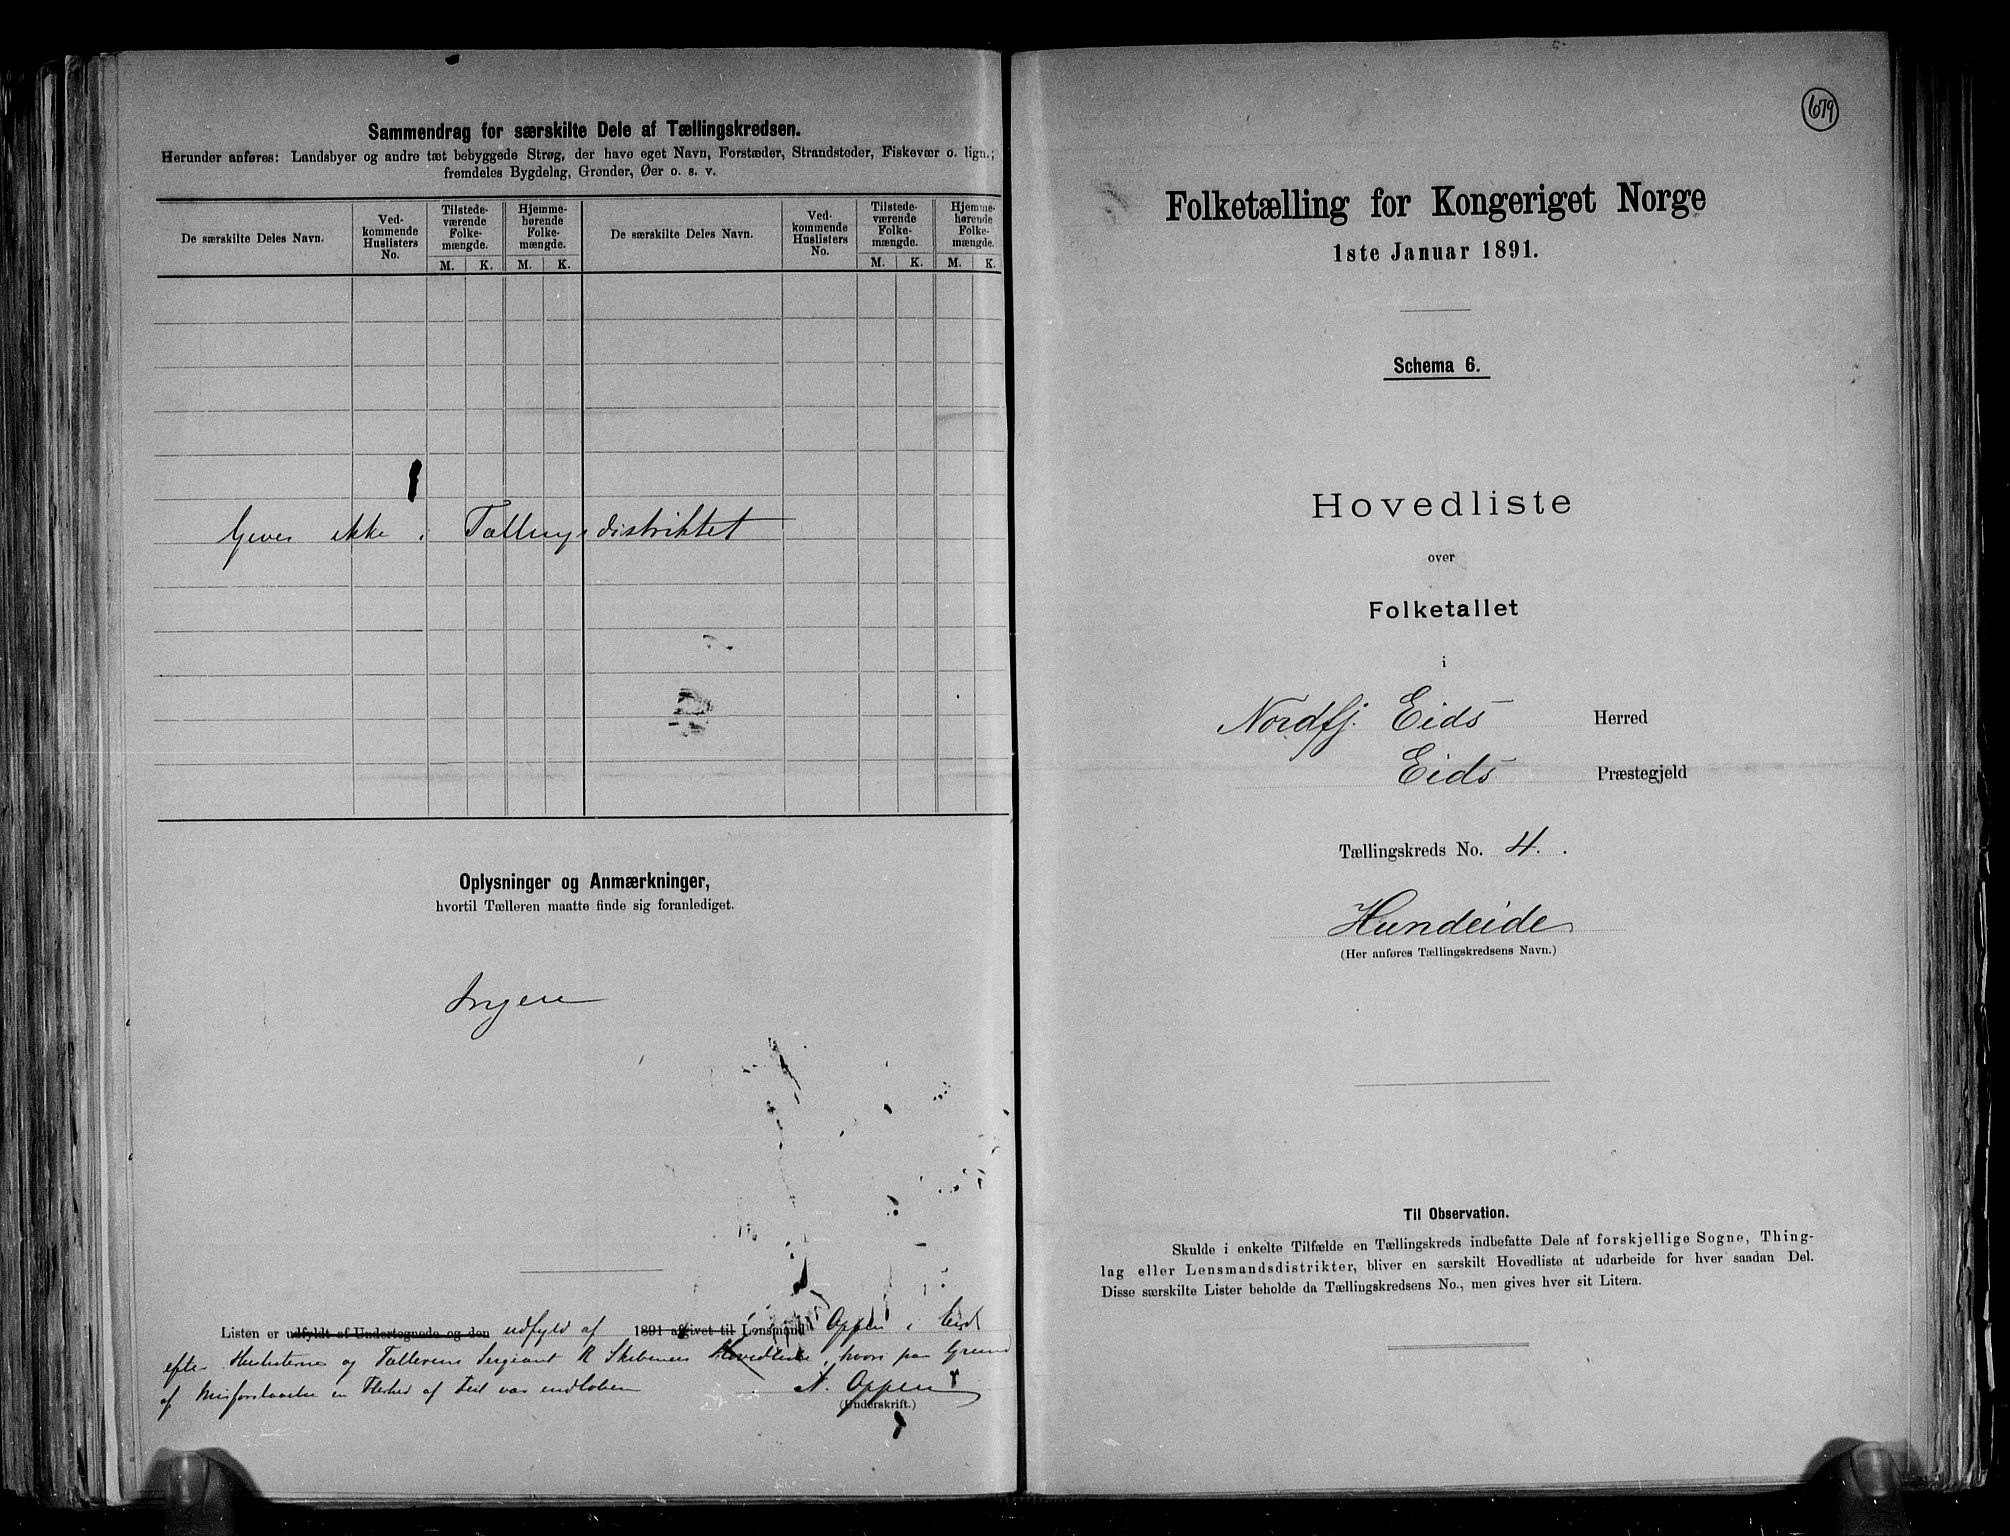 Sammendrag for særskilte Dele af Tællingskredsen.
Herunder anføres: Landsbyer og andre tæt bebyggede Strøg, der have eget Navn, Forstæder, Strandsteder, Fiskevær o. lign.;
fremdeles Bygdelag, Grender, Øer o. s. v.
De særskilte Deles Navn.
Ved-
kommende
Huslisters
No.
Tilstede-
værende
Folke-
mængde.
Hjemme-
hørende
Folke-
mængde.
De særskilte Deles Navn.
Ved-
kommende
Huslisters
No.
Tilstede-
værende
Folke-
mængde.
Hjemme-
hørende
Folke-
mængde.
M. K. M. K. M. K. M. K.
ikke i Tællingsdistriktet
Oplysninger og Anmærkninger,
hvortil Tælleren maatte finde sig foranlediget.
Ingen
Listen er udfyldt af Undertegnede og den udfyld af 1891 afgivet til Lensmand Oppen i Eid
efter Huslisterne og Tællerens Sergeant R Hovedliste, hvori paa Grund
af Misforstaaelse en Flerhed af Feil var indløben N. Oppen
(Underskrift.)
679
Folketælling for Kongeriget Norge
1ste Januar 1891.
Schema 6.
Hovedliste
over
Folketallet
i
Nordfj. Eids Herred
Eids Præstegjeld
Tællingskreds No. 4.
Hundeide
(Her anføres Tællingskredsens Navn.)
Til Observation.
Skulde i enkelte Tilfælde en Tællingskreds indbefatte Dele af forskjellige Sogne, Thing-
lag eller Lensmandsdistrikter, bliver en særskilt Hovedliste at udarbeide for hver saadan Del.
Disse særskilte Lister beholde da Tællingskredsens No., men gives hver sit Litera.